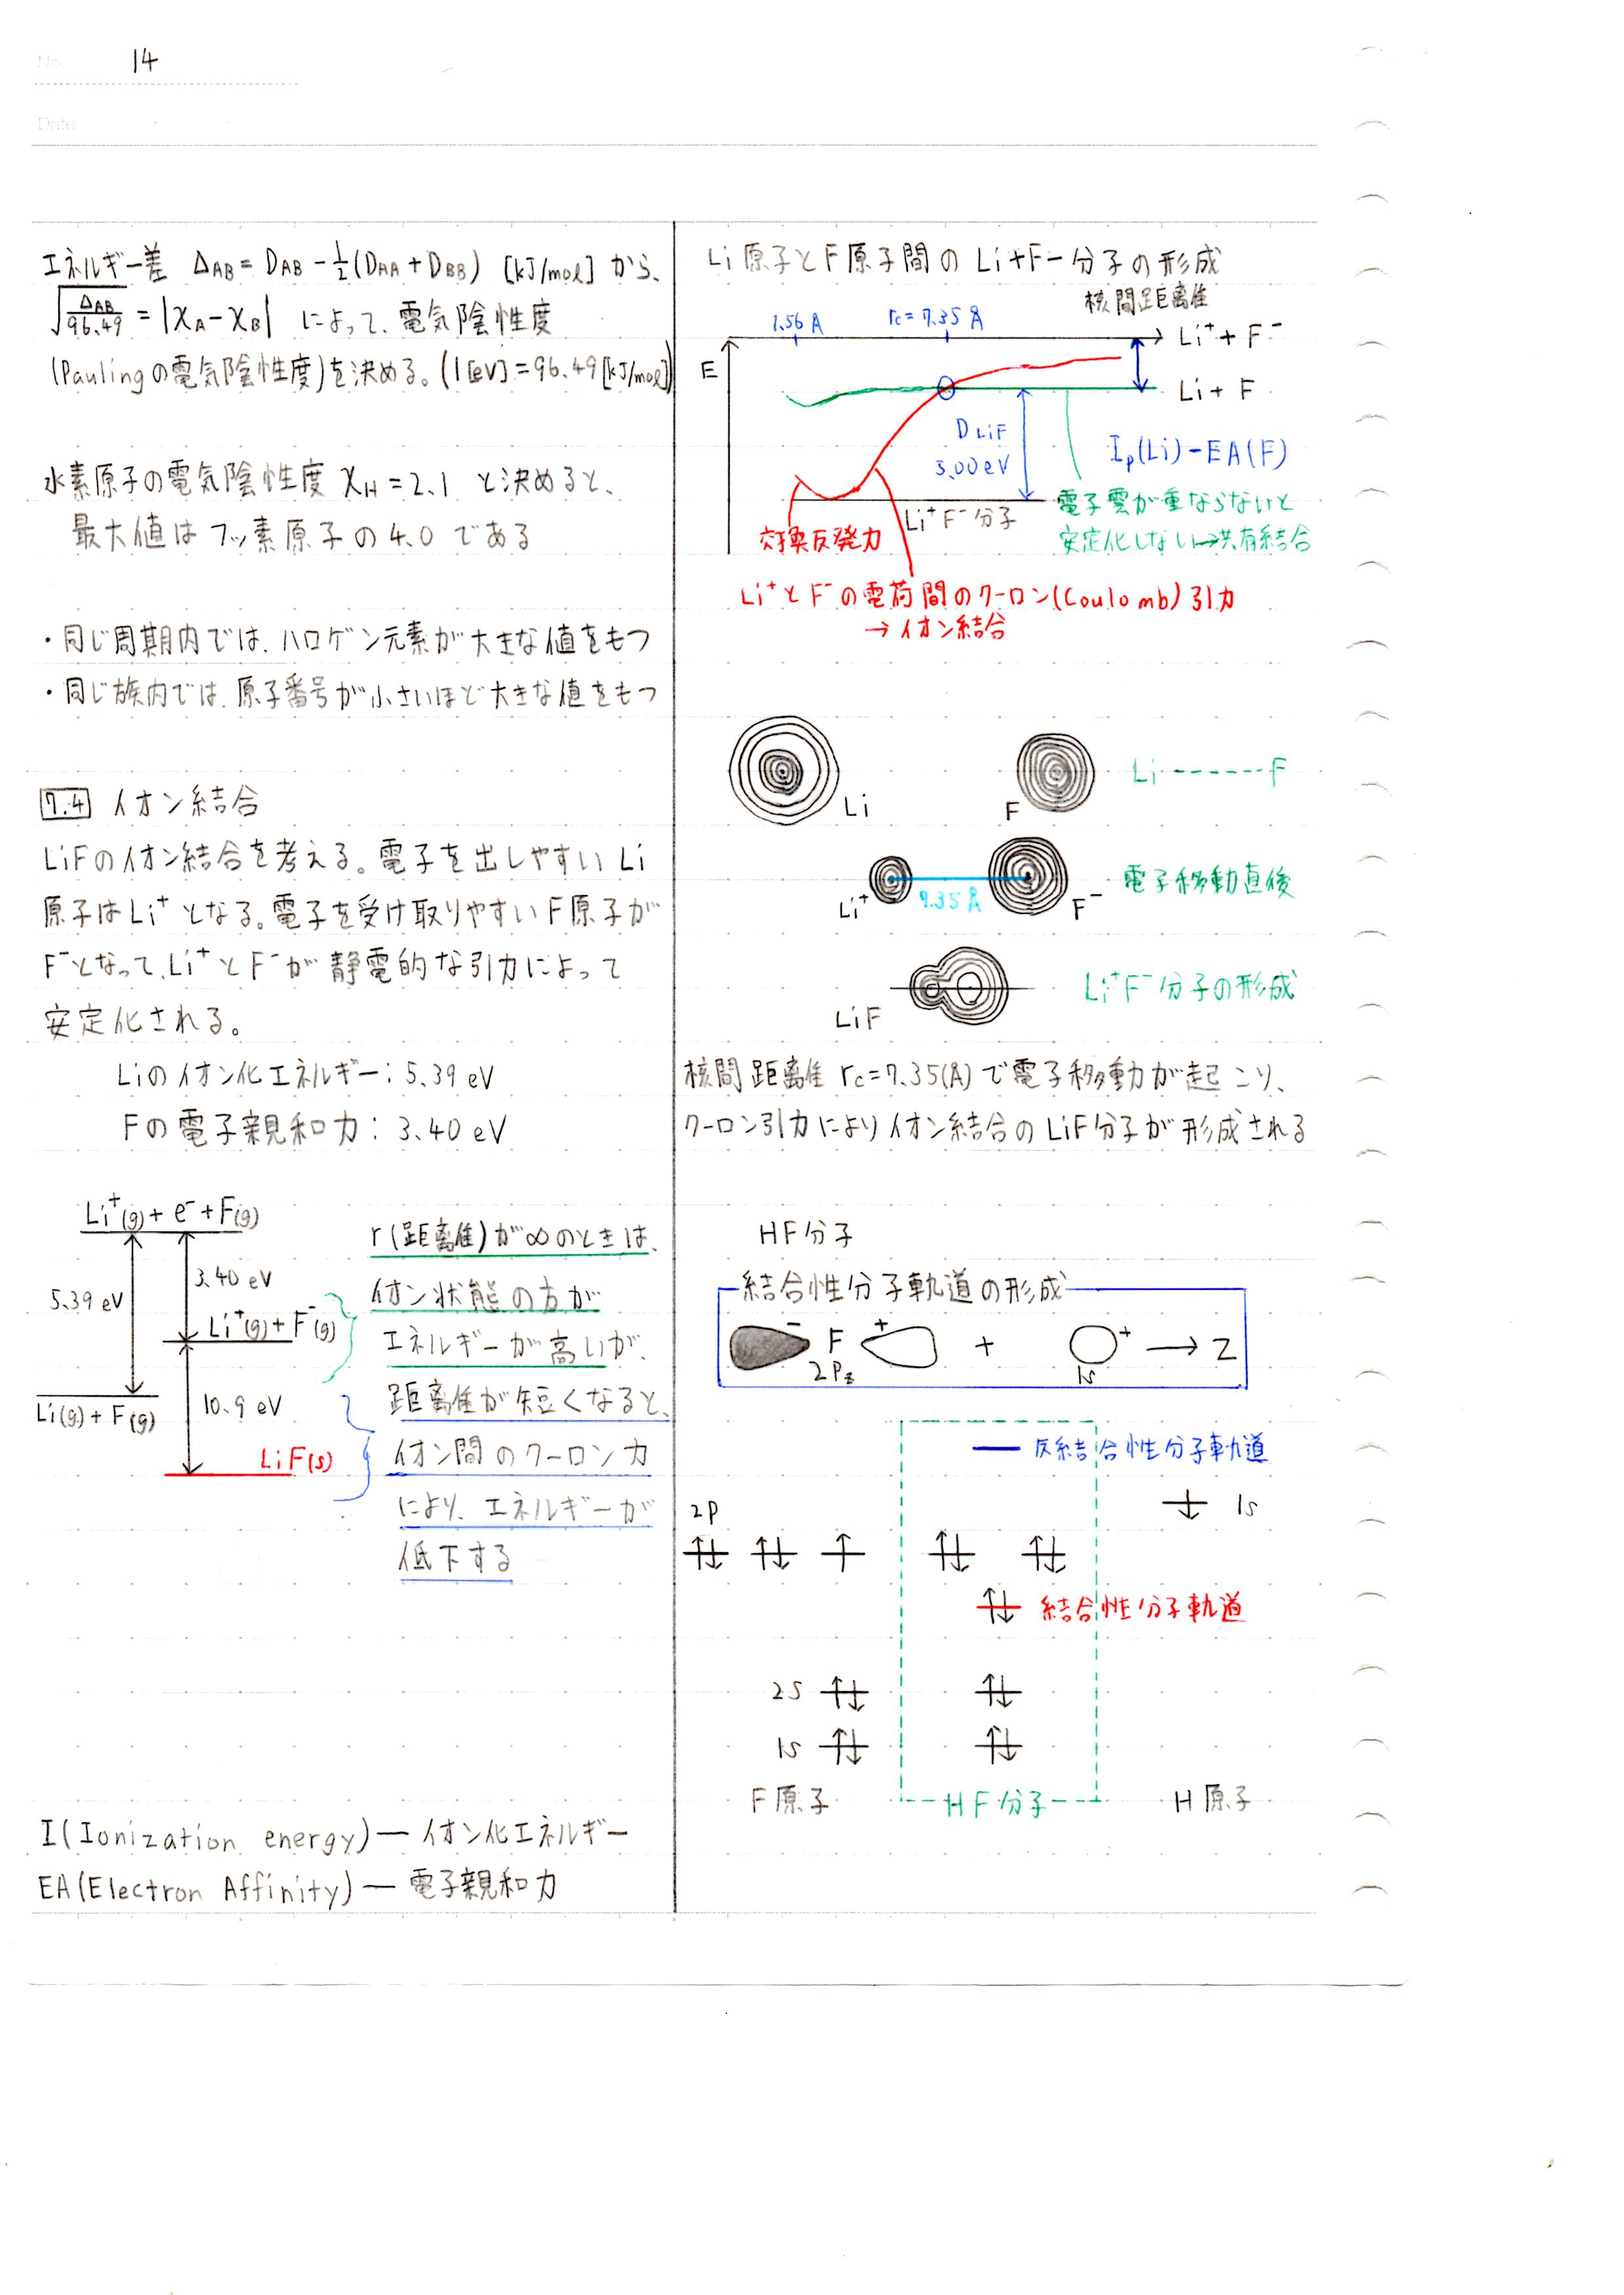 No. 14
Date
エネルギー差 ΔAB = DAB - 1/2(DAA + DBB) [kJ/mol] から、
√(ΔAB/96.49) = |χA - χB| によって、電気陰性度
(Paulingの電気陰性度)を決める。(1[eV] = 96.49[kJ/mol])
水素原子の電気陰性度 χH = 2.1 と決めると、
最大値はフッ素原子の4.0である
・同じ周期内では、ハロゲン元素が大きな値をもつ
・同じ族内では、原子番号が小さいほど大きな値をもつ
7.4 イオン結合
LiFのイオン結合を考える。電子を出しやすいLi
原子はLi⁺となる。電子を受け取りやすいF原子が
F⁻となって、Li⁺とF⁻が静電的な引力によって
安定化される。
Liのイオン化エネルギー: 5.39 eV
Fの電子親和力: 3.40 eV
Li⁺(g) + e⁻ + F(g)
5.39 eV
3.40 eV
Li⁺(g) + F⁻(g)
Li(g) + F(g)
10.9 eV
LiF(s)
r(距離)が∞のときは、
イオン状態の方が
エネルギーが高いが、
距離が短くなると、
イオン間のクーロン力
により、エネルギーが
低下する
I(Ionization energy) ― イオン化エネルギー
EA(Electron Affinity) ― 電子親和力
Li原子とF原子間のLi+F-分子の形成
核間距離
1.56 Å
rc = 7.35 Å
Li⁺ + F⁻
E
Li + F
DLiF
3.00 eV
Ip(Li) - EA(F)
Li⁺F⁻分子
電子雲が重ならないと
安定化しない→共有結合
交換反発力
Li⁺とF⁻の電荷間のクーロン(Coulomb)引力
→イオン結合
Li
F
Li ------ F
Li⁺
7.35 Å
F⁻
電子移動直後
LiF
Li⁺F⁻分子の形成
核間距離 rc = 7.35(Å)で電子移動が起こり、
クーロン引力によりイオン結合のLiF分子が形成される
HF分子
結合性分子軌道の形成
- F + + + → Z
2Pz 1s
反結合性分子軌道
2P
1s
結合性分子軌道
2s
1s
F原子
HF分子
H原子